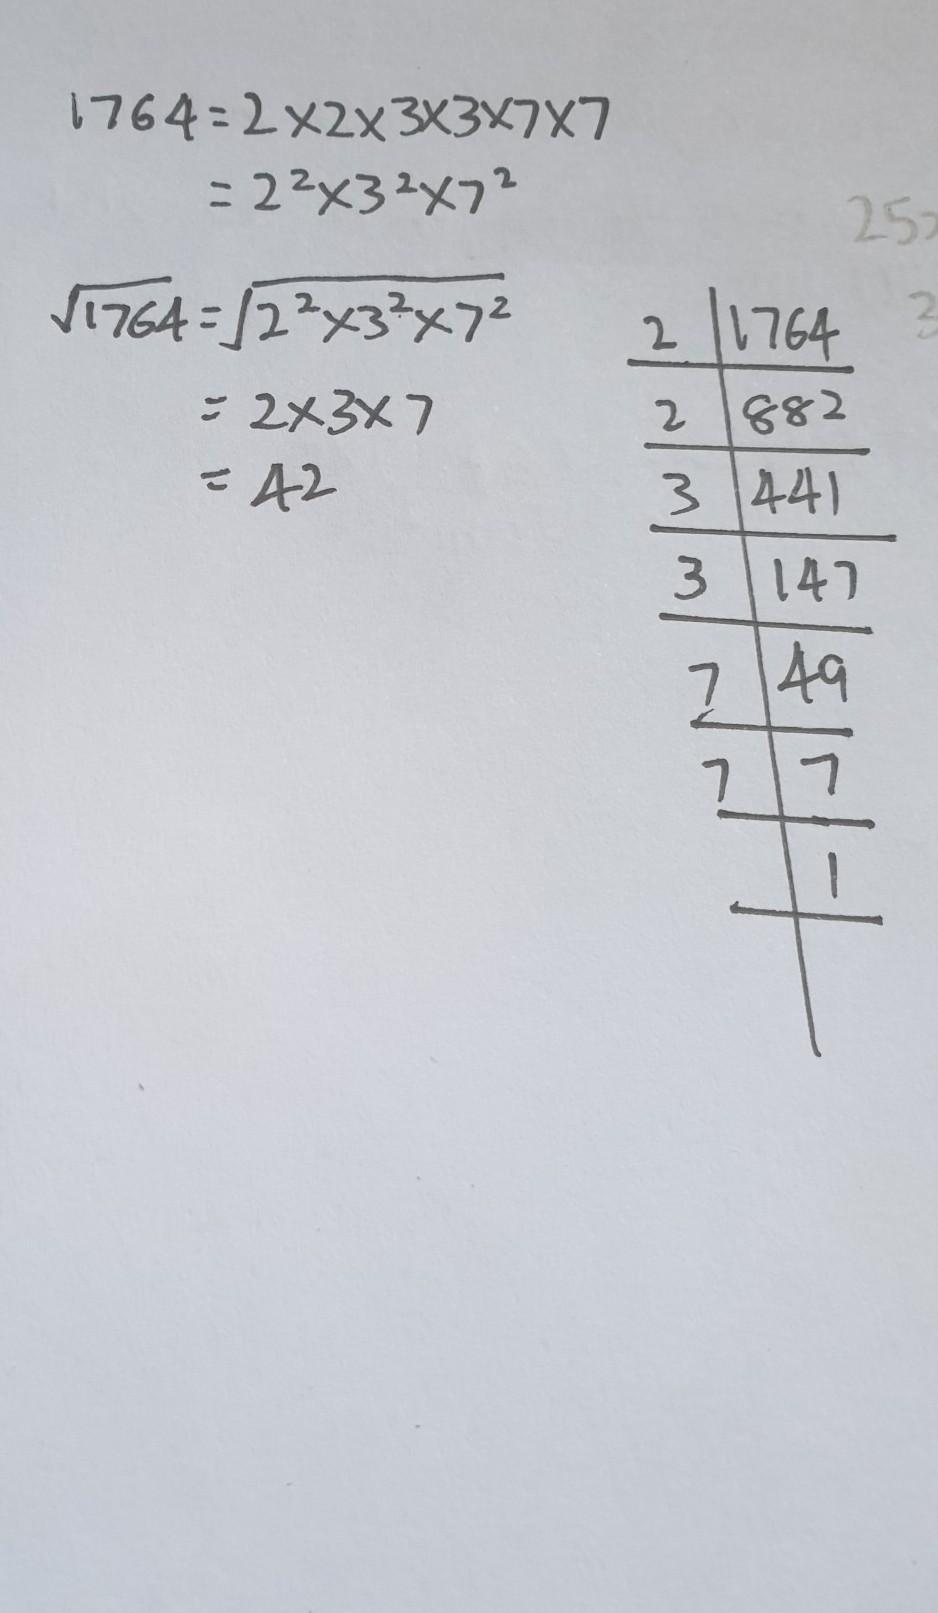 1764=2×2×3×3×7×7
=2²×3²×7²
√1764=√2²×3²×7²
=2×3×7
=42
2|1764
2|882
3|441
3|147
7|49
7|7
|1